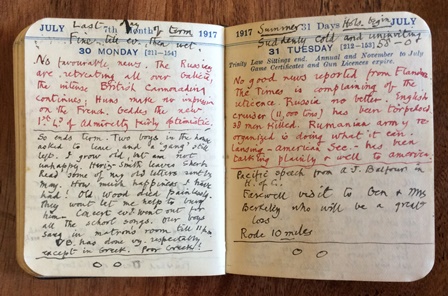 JULY 7th Month 1917
Last day of term
Fine till ev. then wet.
30 MONDAY [211-154]
No favourable news. The Russians
are retreating all over Galicia,
the intense British Cannonading
continues; Huns make no impression
on the French. Geddes the new
1st Ld of Admiralty fairly optimistic.
So ends term. Two boys in the house
asked to leave and a 'gang' still
left. I grow old, but am not
unhappy. Smith leaves
Read some of my old letters
May. How much happiness I have
had! Old wood sale
They won't let me help to bury
him.
all the school songs. Our boys
sang in matron's room till 11
VB. has done v. respectably
except in Greek. Poor Greek!
1917 31 Days JULY
Summer Hols. begin
Suddenly cold and uninviting
31 TUESDAY [212-153] 58°-0°
Trinity Law Sittings end. Annual and November to July
Game Certificates and Gun Licences expire.
No good news reported from Flanders
The Times is complaining of the
reticence. Russia no better. English
cruiser (11,000 tons) has been torpedoed
38 men killed. Rumanian army re-
organised is doing what it can.
Lansing - American Sec. - has been
talking plainly & well to America.
Pacific speech from A. J. Balfour in
H. of C.
Farewell visit to Gen & Mrs
Berkeley who will be a great
loss
Rode 10 miles